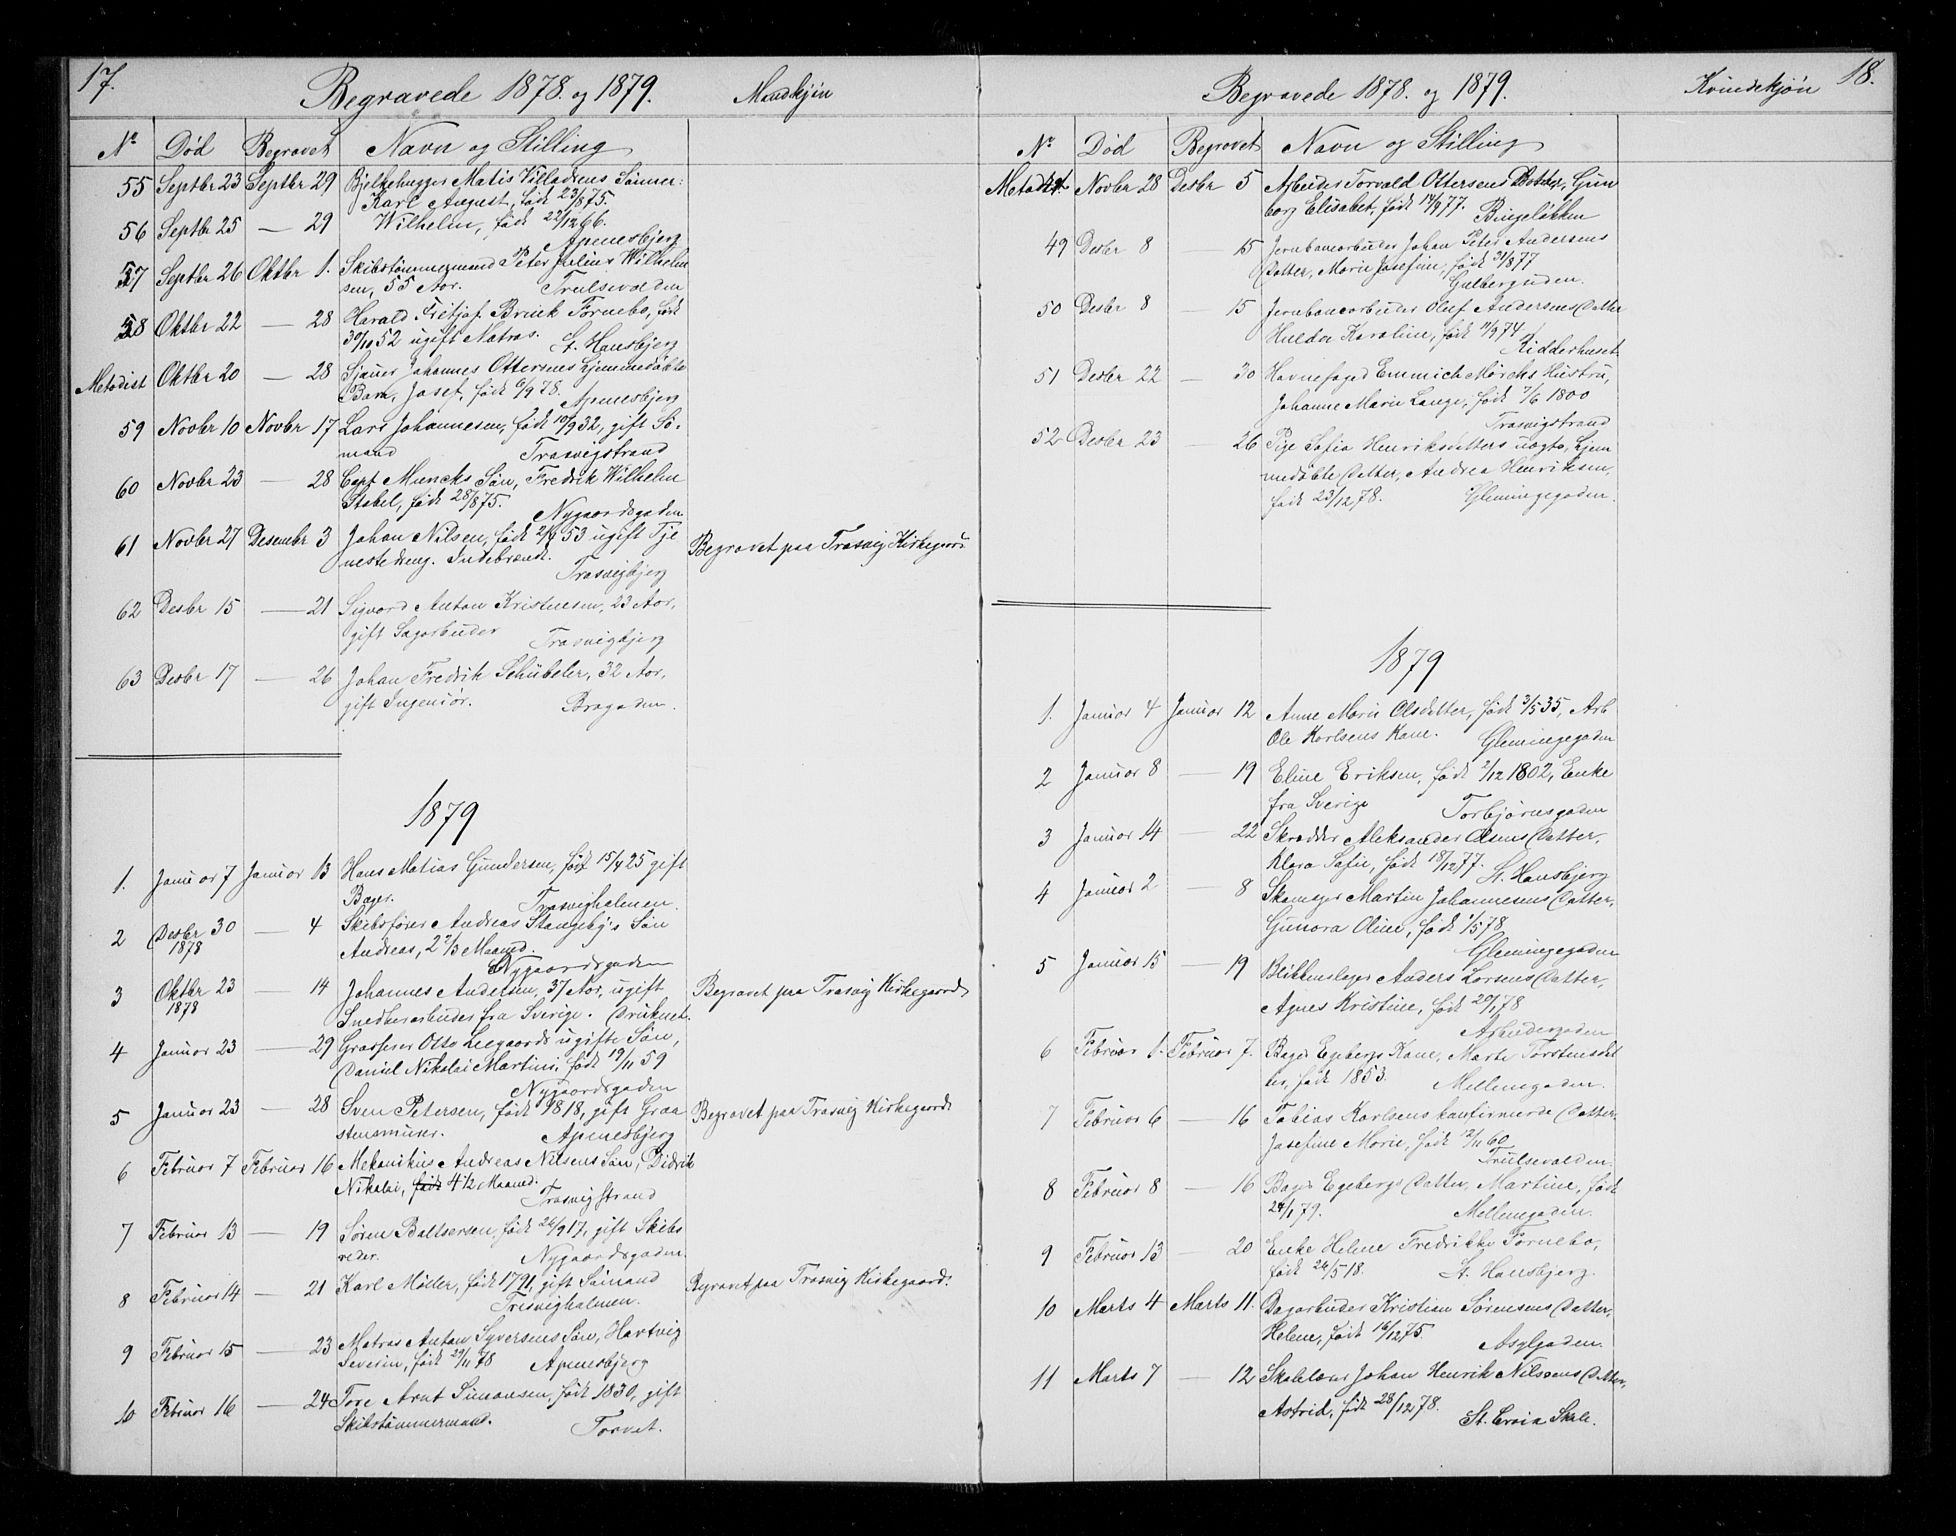 17.
Begravede 1878. og 1879. Mandkjøn
No Død Begravet Navn og Stilling
55 Septbr 23 Septbr 29 Bjelkehugger Matis Villadsens Sønner:
Karl August, født 23/8 75.
56 Septbr 25 — 29 Wilhelm, født 22/12 66.
Apenesbjerg
57 Septbr 26 Oktbr 1. Skibstømmermand Peter Julius Wilhelm
sen, 55 Aar. Trulsevolden
58 Oktbr 22 — 28 Harald Fietjof Brink Tornebo, født
30/10 52 ugift Matros. St. Hansbjerg
Metodist Oktbr 20 — 28 Sjauer Johannes Ottersens hjemmedøbte
Barn, Josef, født 6/9 78. Apenesbjerg
59 Novbr 10 Novbr 17 Lars Johannesen, født 10/9 32, gift Sø-
mand Trosvigstrand
60 Novbr 23 — 28 Capt Muncks Søn, Fredrik Wilhelm
Stabel, født 28/8 75. Nygaardsgaden
61 Novbr 27 Desembr 3 Johan Nilsen, født 2/6 53 ugift Tje
nestedreng. Indebrændt. Begravet paa Trosvig Kirkegaard
Trosvigbjerg
62 Desbr 15 — 21 Sigvard Anton Kristensen, 23 Aar,
gift Sagarbeider Trosvigbjerg
63 Desbr 17 — 26 Johan Fredrik Schübeler, 32 Aar,
gift Ingeniør. Brogaden.
1879
1. Januar 7 Januar 13 Hans Matias Gundersen, født 15/4 25 gift
Bager. Trosvigholmen.
2 Desbr 30 — 4 Skibsfører Andreas Stangeby's Søn
1878 Andreas, 2 2/3 Maaned.
Nygaardsgaden
3 Oktbr 23 — 14 Johannes Andersen, 37 Aar, ugift Begravet paa Trosvig Kirkegaard
1878 Snedkerarbeider fra Sverige. Druknet.
4 Januar 23 — 29 Grosserer Otto Leegaards ugifte Søn,
Daniel Nikolai Martini, født 19/11 59
Nygaardsgaden
5 Januar 23 — 28 Sven Petersen, født 1818, gift Graa Begravet paa Trosvig Kirkegaard
stensmurer. Apenesbjerg
6 Februar 7 Februar 16 Mekanikus Andreas Nilsens Søn, Didrik
Nikolai, født 4 1/2 Maaned.
Trosvigstrand
7 Februar 13 — 19 Søren Baltsersen, født 26/9 17, gift Skibs
reder. Nygaardsgaden.
8 Februar 14 — 21 Karl Møller, født 1791, gift Sømand Begravet paa Trosvig Kirkegaard.
Trosvigholmen.
9 Februar 15 — 23 Matros Anton Syversens Søn, Hartvig
Severin, født 29/11 78 Apenesbjerg
10 Februar 16 — 24 Tore Arnt Simonsen, født 1830, gift
Skibstømmermand. Torvet.
18.
Begravede 1878. og 1879. Kvindekjøn
No Død Begravet Navn og Stilling
Metodist Novbr 28 Desbr 5 Arbeider Torvald Ottersens Datter, Gun
borg Elisabet, født 14/9 77. Bingeløkken
49 Desbr 8 — 15 Jernbanearbeider Johan Peter Andersens
Datter, Marie Josefine, født 31/8 77
Gulbergveien.
50 Desbr 8 — 15 Jernbanearbeider Oluf Andersens Datter
Hulda Karoline, født 11/9 74
Ridderhuset
51 Desbr 22 — 30 Havnefoged Emmich Mørchs Hustru,
Johanne Marie Lange, født 7/6 1800
Trosvigstrand
52 Desbr 23 — 26 Pige Sofia Henriksdatters uægte, hjem
medøbte Datter, Andrea Henriksen,
født 23/12 78. Glemingegaden.
1879
1. Januar 4 Januar 12 Anne Marie Olsdatter, født 3/5 35, Arb
Ole Karlsens Kone. Glemingegaden
2 Januar 8 — 19 Eline Eriksen, født 2/12 1802, Enke
fra Sverige Torbjørnsgaden
3 Januar 14 — 22 Skredder Aleksander Olsens Datter,
Klara Sofie, født 18/12 77. St. Hansbjerg
4 Januar 2 — 8 Skomager Martin Johannesens Datter,
Gunora Oline, født 1/5 78.
Glemingegaden
5 Januar 15 — 19 Blikkenslager Anders Larsens Datter,
Agnes Kristine, født 20/1 78
Arbeidergaden
6 Februar 1. Februar 7. Bager Egebergs Kone, Marte Torstensdat
ter, født 1853. Mellemgaden.
7 Februar 6 — 16 Tobias Karlsens konfirmerede Datter
Josefine Marie, født 12/11 60
Trulsevolden
8 Februar 8 — 16 Bager Egebergs Datter, Martine, født
24/1 79. Mellemgaden.
9 Februar 13 — 20 Enke Helene Fredrikke Tornebo,
født 26/5 18. St. Hansbjerg.
10 Marts 4 Marts 11. Dagarbeider Kristian Sørensens Datter,
Helene, født 16/12 75. Asylgaden.
11 Marts 7 — 12 Skolelærer Johan Henrik Nilssens Datter,
Astrid, født 28/12 78. St. Croix Skole.